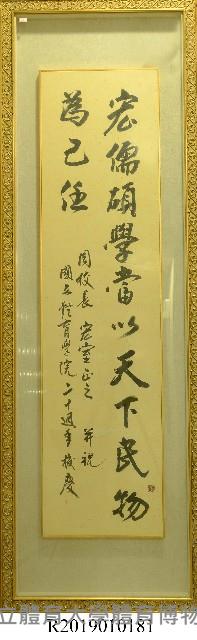 宏儒碩學當以天下民物
為己任
周校長 宏室正之 并祝
國立體育學院二十週年校慶
立體育大學體育博物
R2019010181